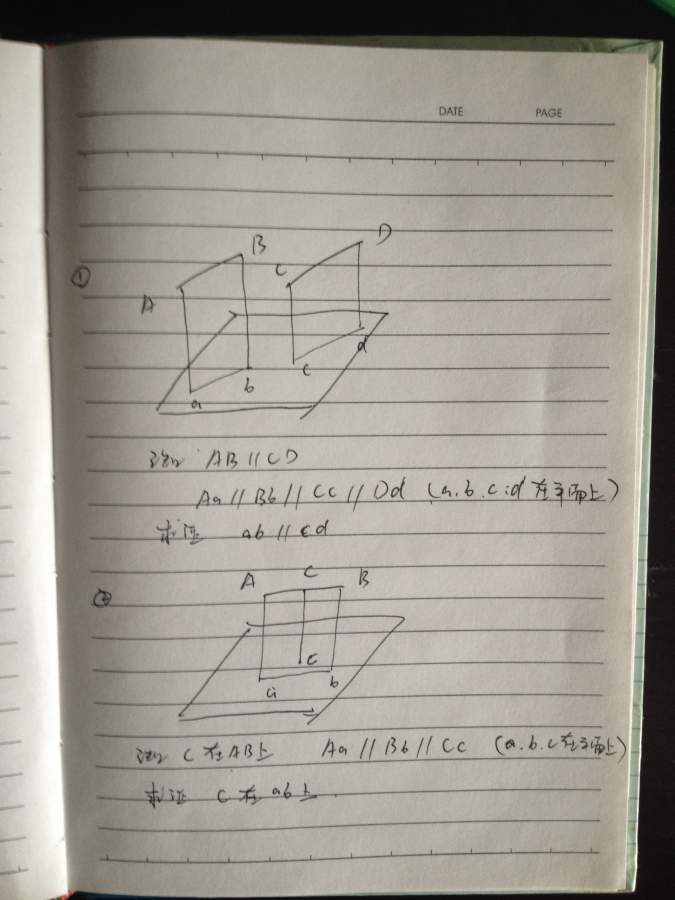 DATE PAGE
①
B
D
C
A
d
c
b
a
已知 AB∥CD
Aa∥Bb∥Cc∥Dd (a.b.c.d在平面上)
求证 ab∥cd
②
A C B
c
b
a
已知 C在AB上 Aa∥Bb∥Cc (a.b.c在平面上)
求证 c在ab上.